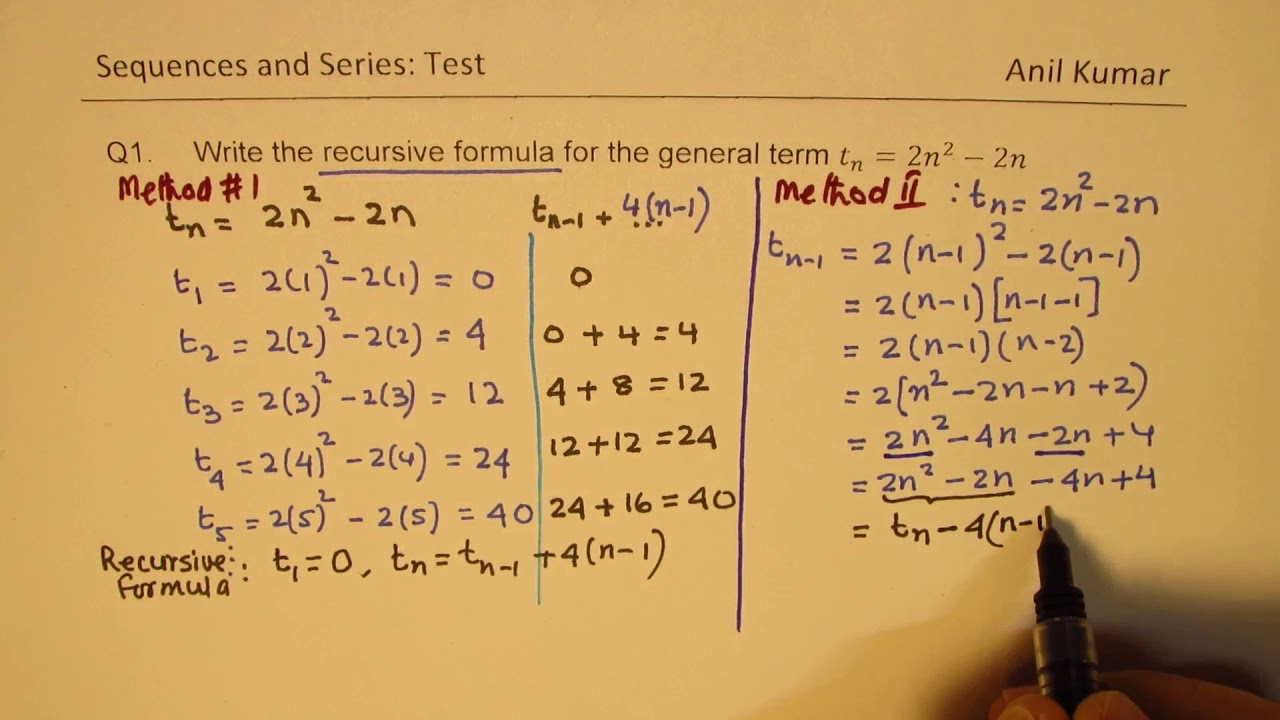 Sequences and Series: Test
Anil Kumar
Q1. Write the recursive formula for the general term tₙ = 2n² − 2n
Method #1
tₙ = 2n² − 2n
t₁ = 2(1)² − 2(1) = 0
t₂ = 2(2)² − 2(2) = 4
t₃ = 2(3)² − 2(3) = 12
t₄ = 2(4)² − 2(4) = 24
t₅ = 2(5)² − 2(5) = 40
tₙ₋₁ + 4(n−1)
0
0 + 4 = 4
4 + 8 = 12
12 + 12 = 24
24 + 16 = 40
Recursive Formula: t₁ = 0, tₙ = tₙ₋₁ + 4(n−1)
Method II : tₙ = 2n² − 2n
tₙ₋₁ = 2(n−1)² − 2(n−1)
= 2(n−1)[n−1−1]
= 2(n−1)(n−2)
= 2(n² − 2n − n + 2)
= 2n² − 4n − 2n + 4
= 2n² − 2n − 4n + 4
= tₙ − 4(n−1